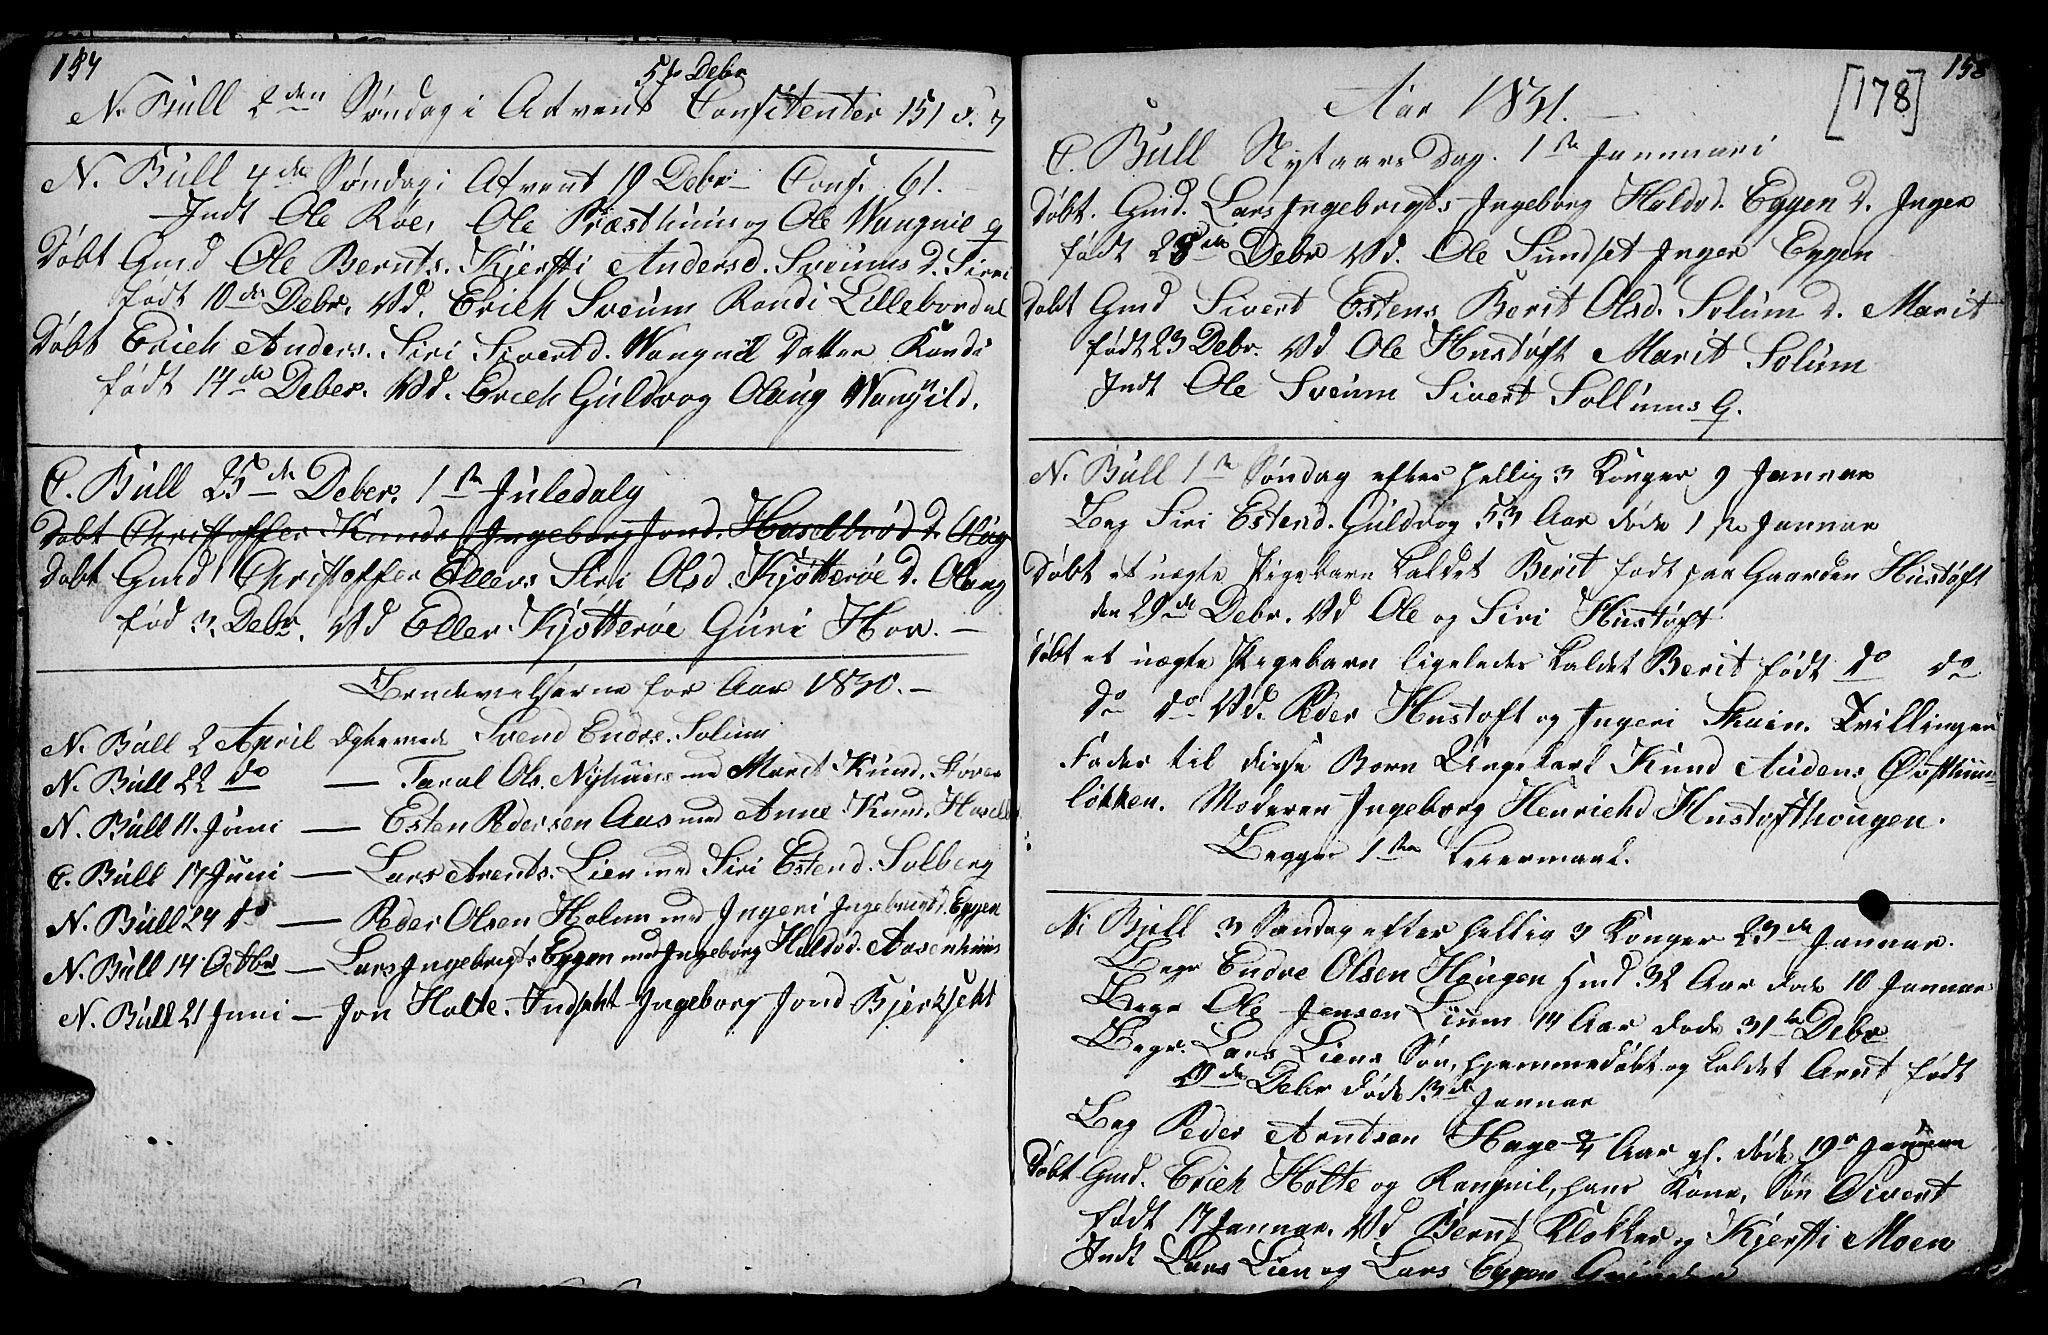 157
5te Debr
N. Bull 2den Søndag i Advent Confitenter 151 S. 7
N. Bull 4de Søndag i Advent 19 Debr Conf. 61.
Indt Ole Røe, Ole Præsthuus og Ole Wangnie Q
Døbt Gmd Ole Bernts. Kjersti Andersd. Sveums D. Siri
født 10de Debr. Vd. Erich Sveum Randi Lillebordal
Døbt Erich Anders. Siri Sivertd. Wangnil Datter Randi
født 14de Deber. Vd. Erich Guldvog Olaug Wangnild.
C. Bull 25de Deber. 1ste Juledalg
Døbt Christoffer Knuds Ingeborg Jond. Haselbrød D. Olög
Døbt Gmd Christoffer Ellevs Siri Olsd. Kjøtterøe D. Olaug
fød 3. Debr. Vd Eller Kjøtterøe Guri Hov. —
Brudevielserne for Aar 1830. —
N. Bull 2 April Egteviede Svend Endre. Solum
N. Bull 22 do — Taral Ols. Nyhuus med Marit Knud. Støren
N. Bull 11. Juni — Esten Pedersen Aas med Anne Knud. Hasell
C. Bull 17 Juni — Lars Arents. Lien med Siri Estend. Solberg
N. Bull 24 do — Peder Olsen Holum med Ingeri Ingebrigtd. Eggen
N. Bull 14 Octbr — Lars Ingebrigts Eggen med Ingeborg Haldod. Aasenhuus
N. Bull 21 Juni — Jon Holte. Indset Ingeborg Jond Bjerkset
158
[178]
Aar 1831. —
C. Bull Nytaars Dag. 1ste Januari
Døbt. Gmd. Lars Ingebrigts Ingeborg Haldod. Eggen D. Inger
født 28de Debr Vd. Ole Sundset Inger Eggen
Døbt Gmd Sivert Estens Berit Olsd. Solum D. Marit
født 23 Debr. Vd Ole Hustøft Marit Solum
Indt Ole Sveum Sivert Sollums Q.
N. Bull 1ste Søndag efter hellig 3 Konger 9 Januar
Beg Siri Estend. Guldvog 53 Aar døde 1ste Januar
Døbt et uægte Pigebarn kaldet Berit født paa Gaarden Hustøft
den 29de Debr. Vd Ole og Siri Hustøft
Døbt et uægte Pigebarn ligeledes kaldet Berit født do do
do do Vd. Peder Hustoft og Ingeri Skuin. Tvillinger
Fader til disse Born Ungekarl Knud Audens Østhuus
løkken. Moderen Ingeborg Henrichd Hustofthougen.
Begges 1ste Leiermaal.
N. Bull 3 Søndag efter hellig 3 Konger 23de Januar.
Begr Endre Olsen Hougen Hmd 32 Aar døde 10 Januar
Begr Ole Jensen Lium 14 Aar døde 31te Debr
Begr. Lars Liens Søn, hjemmedøbt og kaldet Arnt, født
9de Debr døde 13de Januar
Beg Peder Arntsen Hage 4 Aar gl. døde 19de Januar
Døbt Gmd. Erich Holte og Rangnil, hans Kone, Søn Sivert
født 17 Januar. Vd Bernt Klokker og Kjersti Moen
Indt Lars Lien og Lars Eggen